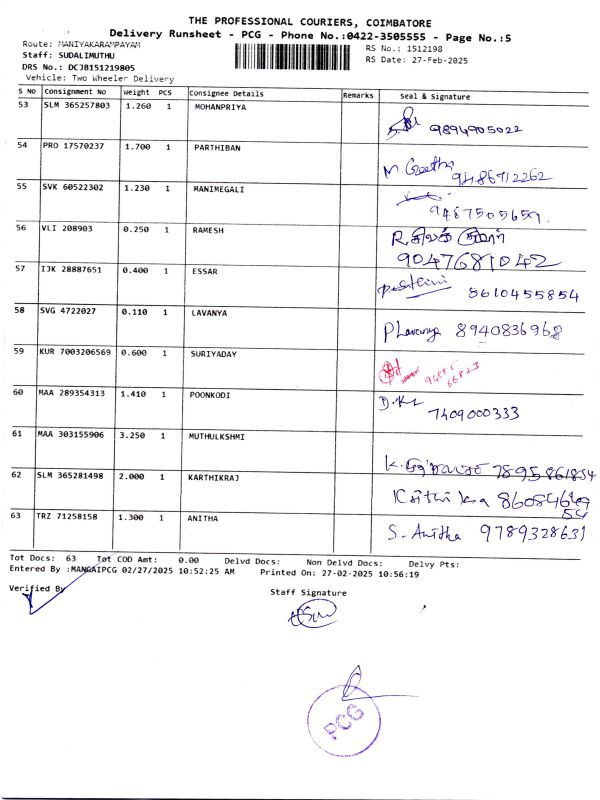 THE PROFESSIONAL COURIERS, COIMBATORE
Delivery Runsheet - PCG - Phone No.:0422-3505555 - Page No.:5
Route: MANIYAKARAMPAYAM RS No.: 1512198
Staff: SUDALIMUTHU RS Date: 27-Feb-2025
DRS No.: DCJB151219805
Vehicle: Two Wheeler Delivery
S No Consignment No Weight PCS Consignee Details Remarks Seal & Signature
53 SLM 365257803 1.260 1 MOHANPRIYA 9894905022
54 PRO 17570237 1.700 1 PARTHIBAN M. Geetha 9486712262
55 SVK 60522302 1.230 1 MANIMEGALI 9487505659.
56 VLI 208903 0.250 1 RAMESH R. திலக் குமார்
9047681042
57 IJK 28887651 0.400 1 ESSAR 8610455854
58 SVG 4722027 0.110 1 LAVANYA P Lavanya 8940836968
59 KUR 7003206569 0.600 1 SURIYADAY
60 MAA 289354313 1.410 1 POONKODI 7409000333
61 MAA 303155906 3.250 1 MUTHULKSHMI 7895861854
62 SLM 365281498 2.000 1 KARTHIKRAJ
63 TRZ 71258158 1.300 1 ANITHA S. Anitha 9789328631
Tot Docs: 63 Tot COD Amt: 0.00 Delvd Docs: Non Delvd Docs: Delvy Pts:
Entered By :MANGAIPCG 02/27/2025 10:52:25 AM Printed On: 27-02-2025 10:56:19
Verified By Staff Signature
PCG